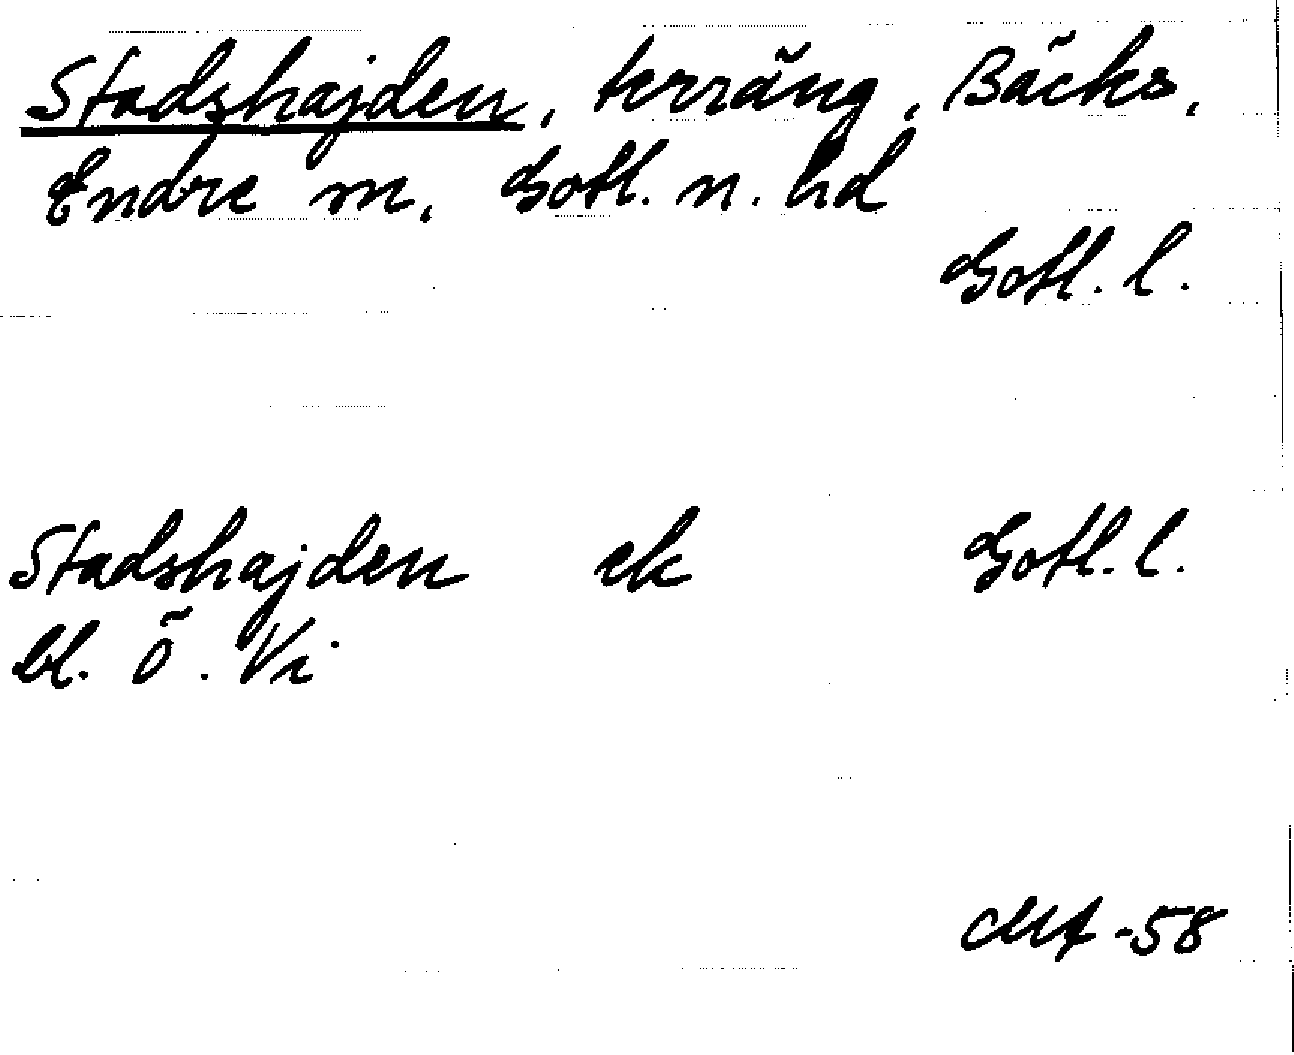 Stadshajden, terräng, Bäcks,
Endre sn, Gotl. n. hd
Gotl. l.
Stadshajden ek Gotl. l.
bl. Ö. Vi
-58